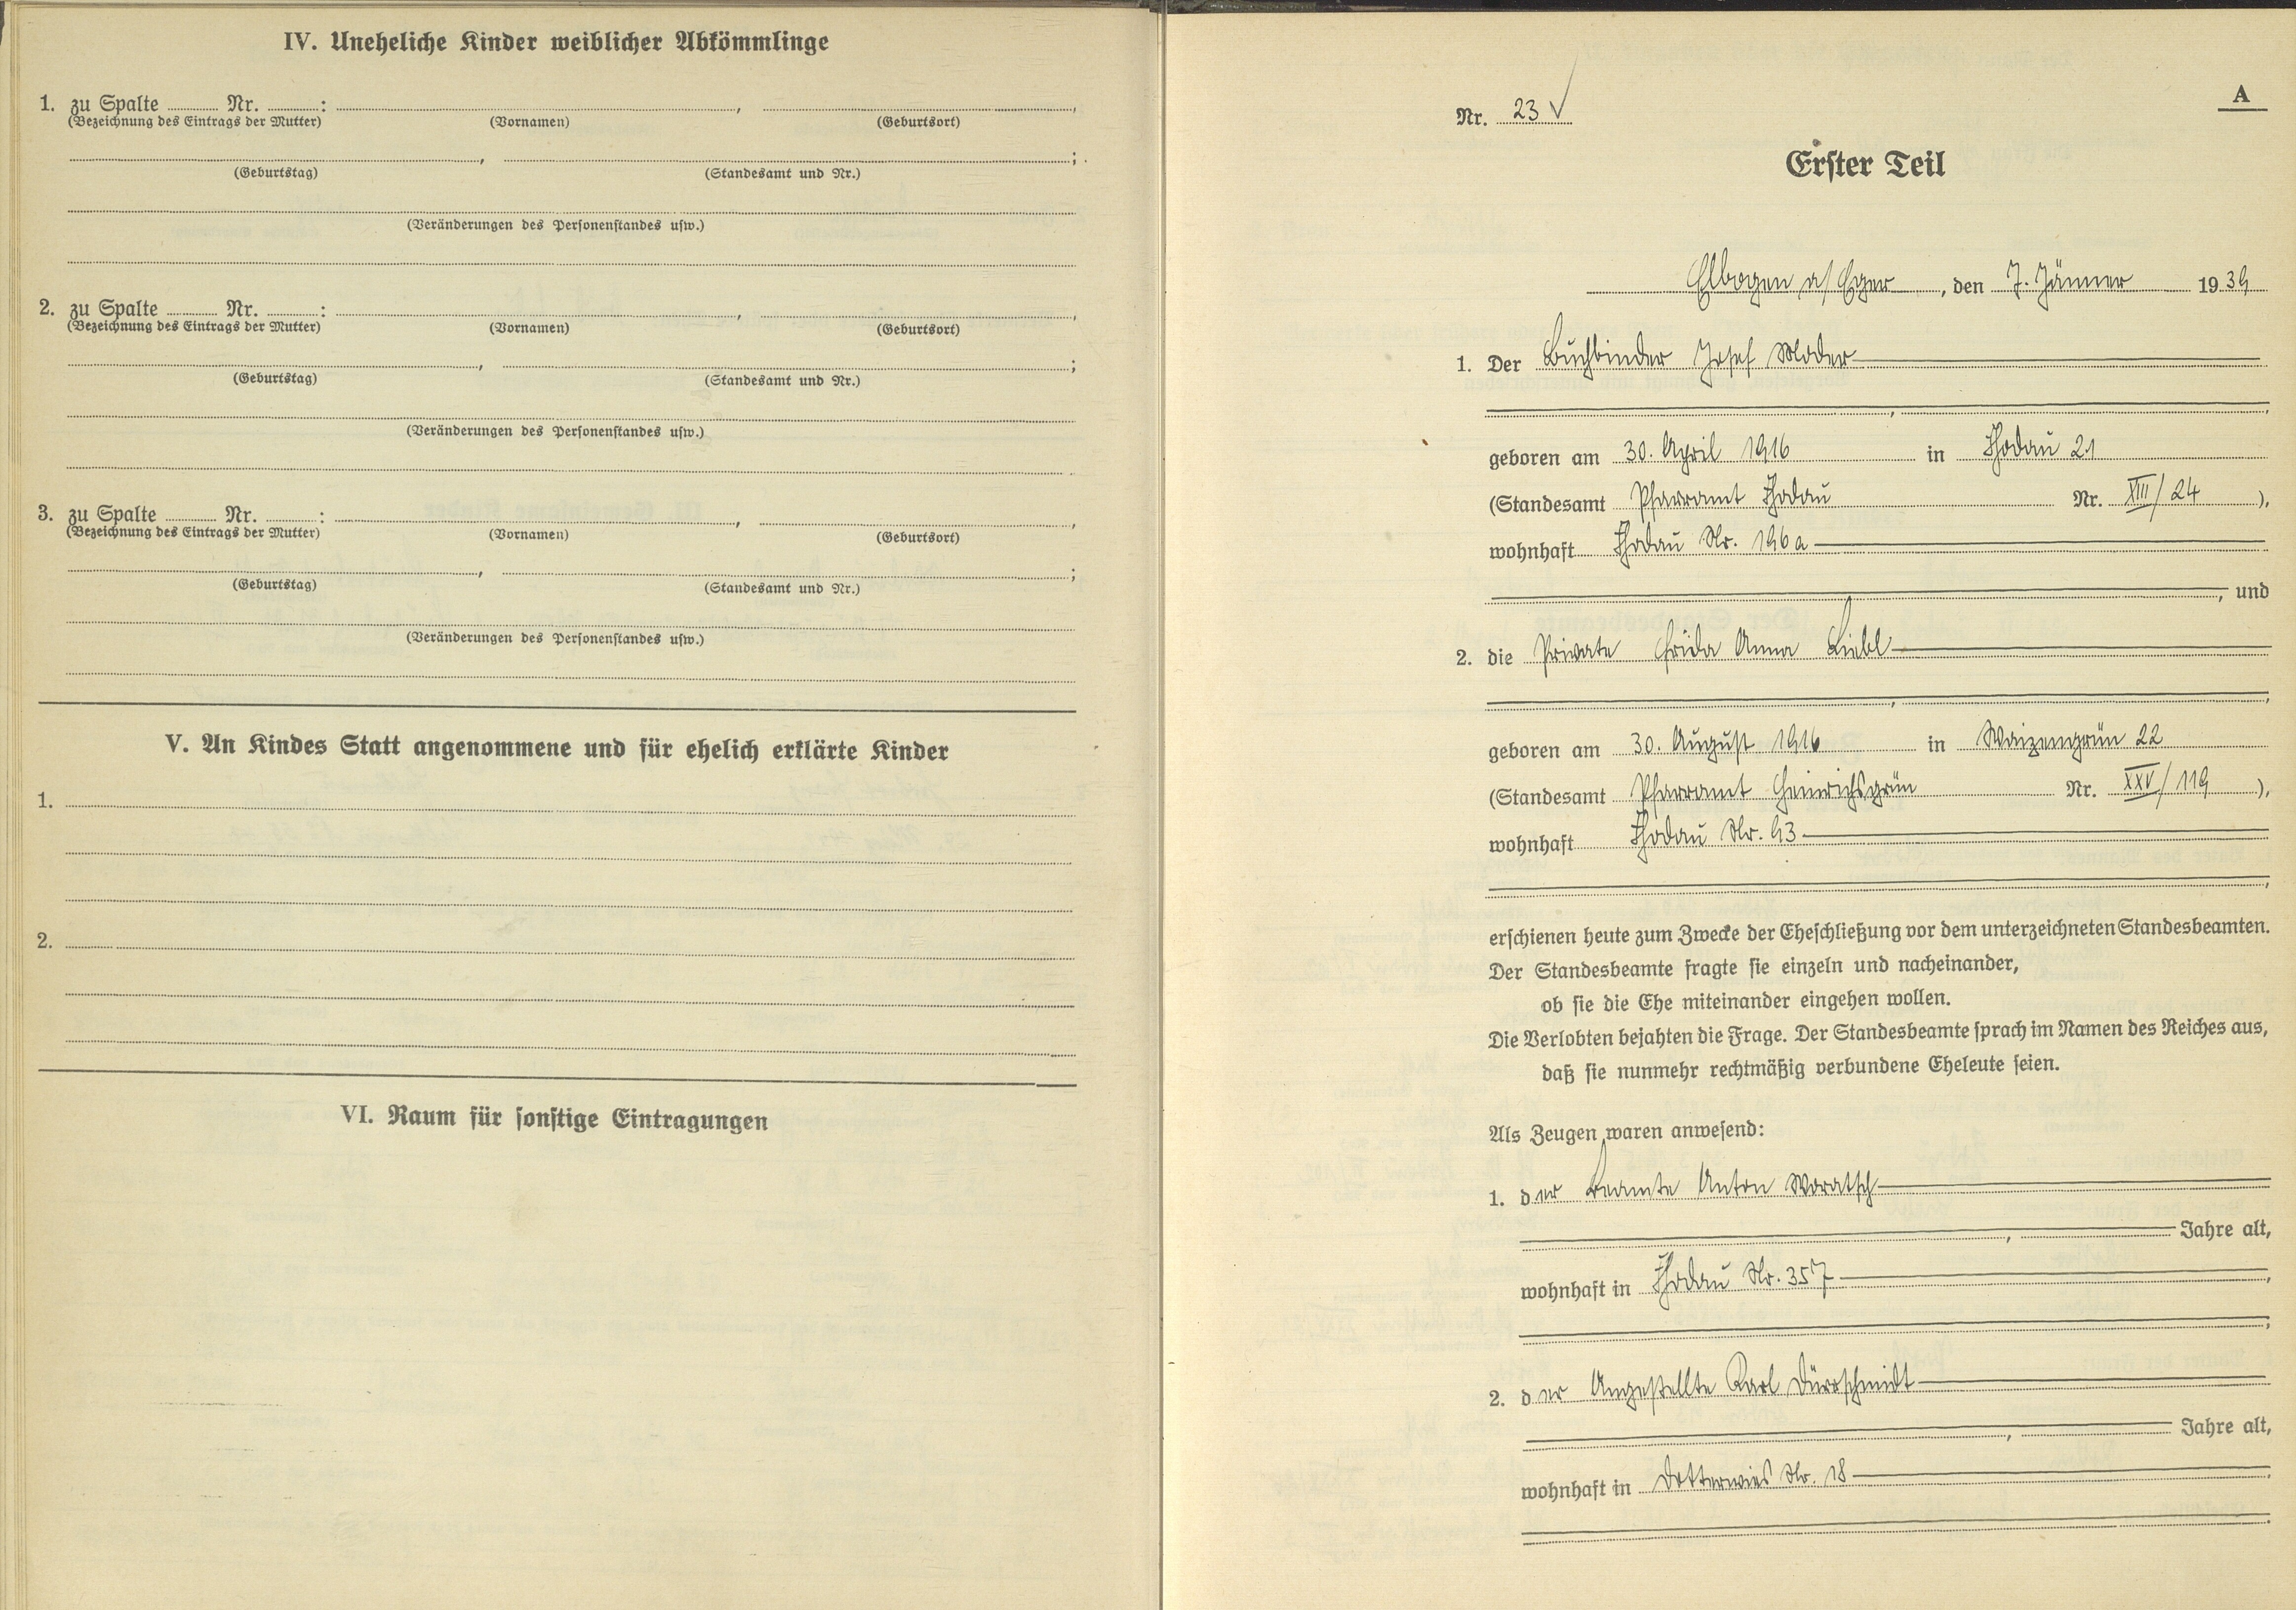 IV. Uneheliche Kinder weiblicher Abkömmlinge
1. zu Spalte ........ Nr. ........:
(Bezeichnung des Eintrags der Mutter) (Vornamen) (Geburtsort)
(Geburtstag) (Standesamt und Nr.)
(Veränderungen des Personenstandes usw.)
2. zu Spalte ........ Nr. ........:
(Bezeichnung des Eintrags der Mutter) (Vornamen) (Geburtsort)
(Geburtstag) (Standesamt und Nr.)
(Veränderungen des Personenstandes usw.)
3. zu Spalte ........ Nr. ........:
(Bezeichnung des Eintrags der Mutter) (Vornamen) (Geburtsort)
(Geburtstag) (Standesamt und Nr.)
(Veränderungen des Personenstandes usw.)
V. An Kindes Statt angenommene und für ehelich erklärte Kinder
1.
2.
VI. Raum für sonstige Eintragungen
A
Nr. 23
Erster Teil
Elbogen a/Eger, den 7. Jänner 1939
1. Der Buchbinder Josef Moder
geboren am 30. April 1916 in Chodau 21
(Standesamt Pfarramt Chodau Nr. XIII/24),
wohnhaft Chodau Nr. 196a
, und
2. die Private Frida Anna Liebl
geboren am 30. August 1916 in Waizengrün 22
(Standesamt Pfarramt Heinrichsgrün Nr. XXV/119),
wohnhaft Chodau Nr. 93
erschienen heute zum Zwecke der Eheschließung vor dem unterzeichneten Standesbeamten.
Der Standesbeamte fragte sie einzeln und nacheinander,
ob sie die Ehe miteinander eingehen wollen.
Die Verlobten bejahten die Frage. Der Standesbeamte sprach im Namen des Reiches aus,
daß sie nunmehr rechtmäßig verbundene Eheleute seien.
Als Zeugen waren anwesend:
1. der Beamte Anton Woratsch
Jahre alt,
wohnhaft in Chodau Nr. 357
2. der Angestellte Karl Dürrschmidt
Jahre alt,
wohnhaft in Dotterwies Nr. 18